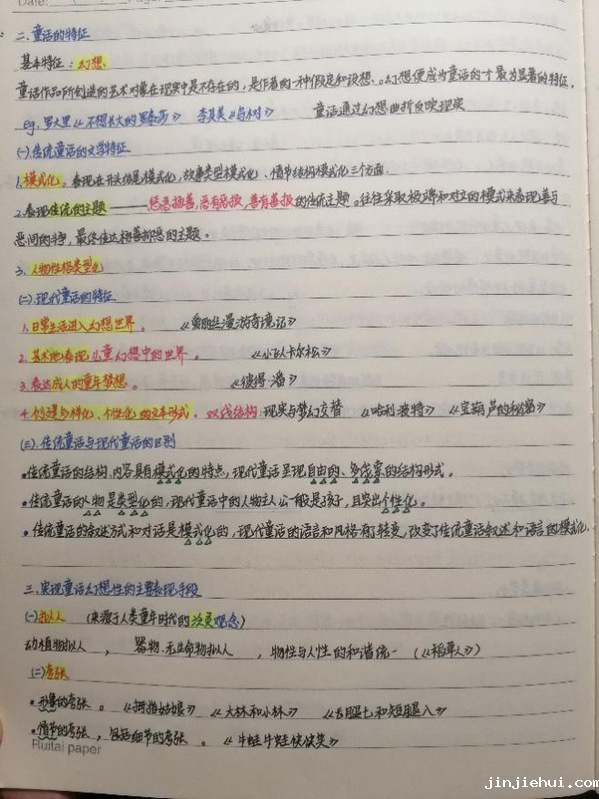 Date:
二.童话的特征
基本特征：幻想.
童话作品所创造的艺术对象在现实中是不存在的，是作者的一种假定和设想.。幻想便成为童话的一个最为显著的特征.
eg. 罗大里《不想长大的罗泰莎》 李其美《鸟树》 童话通过幻想曲折反映现实
(一).传统童话的文学特征
1.模式化。表现在开头结尾模式化，故事类型模式化、情节结构模式化三个方面.
2.表现传统的主题——惩恶扬善，恶有恶报，善有善报的传统主题。往往采取极端和对立的模式来表现善与
恶间的斗争，最终传达扬善抑恶的主题。
3. 人物性格类型化
(二).现代童话的特征
1.日常生活进入幻想世界。 《爱丽丝漫游奇境记》
2.艺术地表现儿童幻想中的世界。 《小飞人卡尔松》
3.表达成人的童年梦想。 《彼得·潘》
4.创造多样化、个性化的文本形式。双线结构:现实与梦幻交替 《哈利波特》 《宝葫芦的秘密》
(三).传统童话与现代童话的区别
•传统童话的结构、内容具有模式化的特点，现代童话呈现自由的、多线索的结构形式。
•传统童话的人物是类型化的，现代童话中的人物主人公一般是孩子，且突出个性化。
•传统童话的叙述方式和对话是模式化的，现代童话的语言和风格有了转变，改变了传统童话叙述和语言的模式化.
三.实现童话幻想性的主要表现手段
(一)拟人 (来源于人类童年时代的泛灵观念)
动植物拟人， 器物、无生命物拟人，物性与人性的和谐统一 (《稻草人》)
(二)夸张
•形象的夸张。《拇指姑娘》 《大林和小林》 《长腿七和短腿八》
•情节的夸张，包括细节的夸张。《牛蛙牛蛙侠侠笑》
Fluitai paper
www.jinjiehui.com